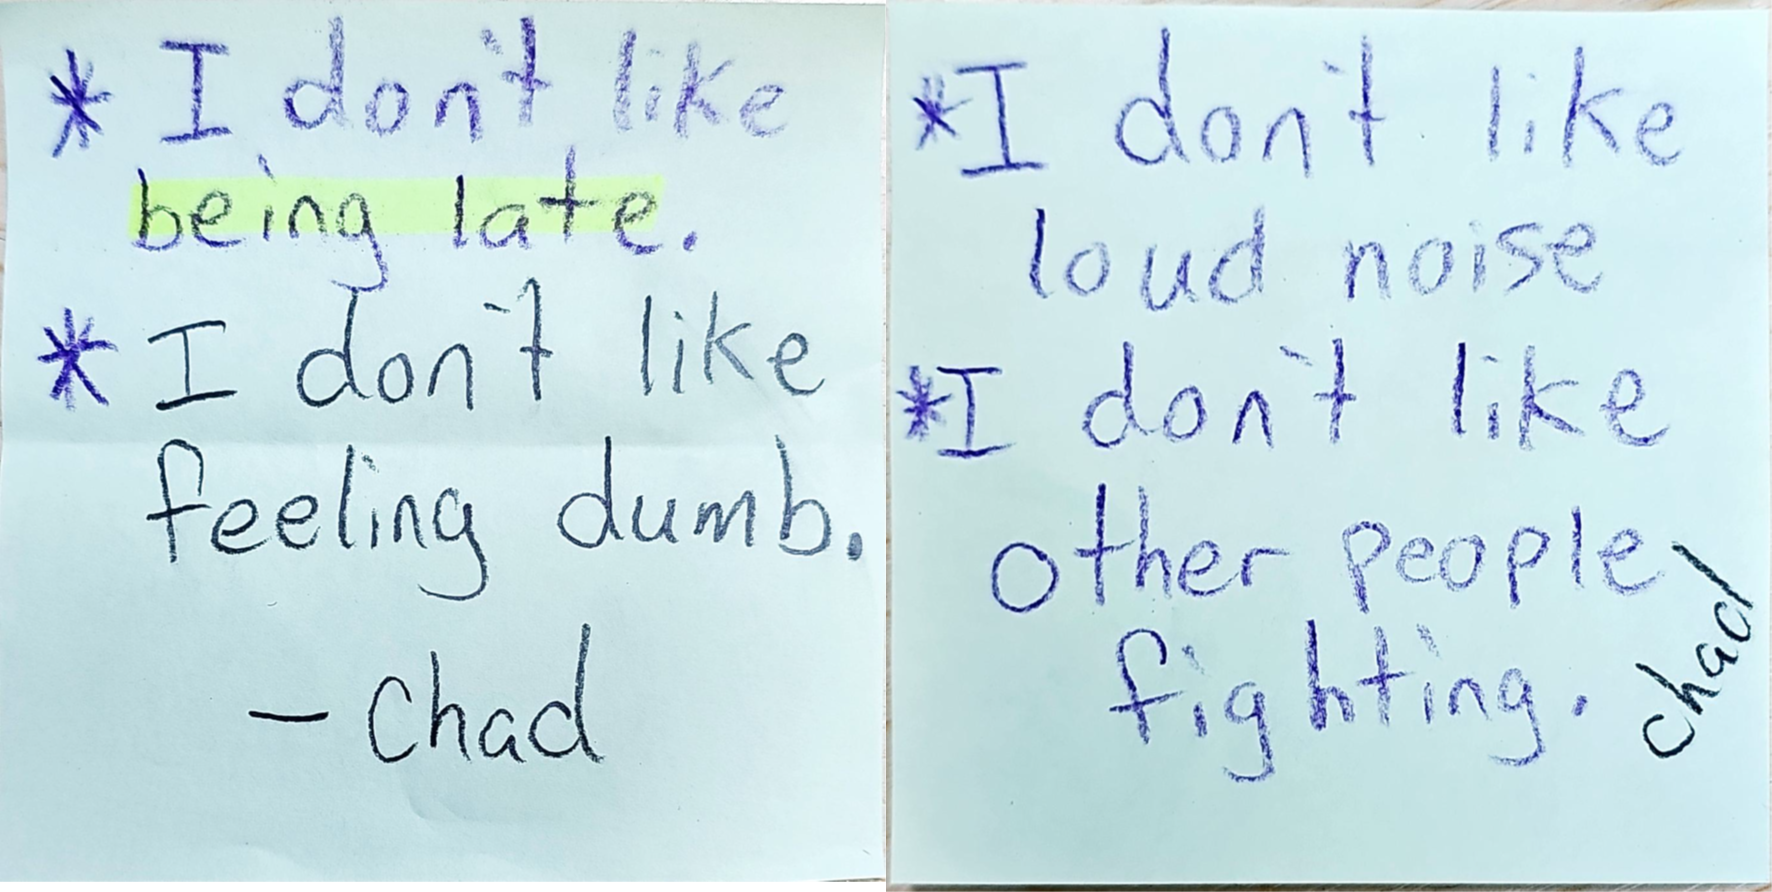 * I don't like
being late.
* I don't like
feeling dumb.
- Chad
*I don't like
loud noise
*I don't like
other people
fighting.
chad